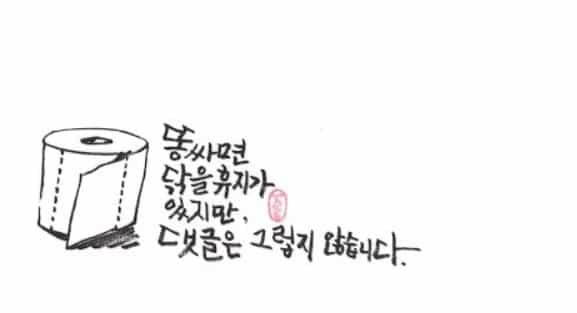 똥싸면
닦을휴지가
있지만,
댓글은 그렇지 않습니다.